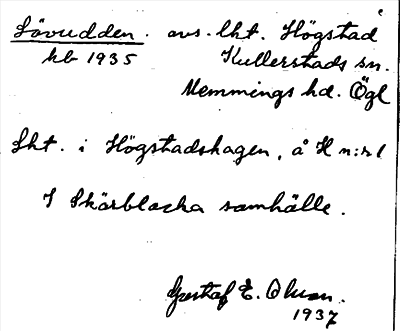 Lövudden. avs. lht. i Högstad
hb 1935 Kullerstads sn.
Memmings hd. Ögl
Lht. i Högstadshagen, å H n:r 1
I Skärblacka samhälle.
Gustaf E. Olsson.
1937